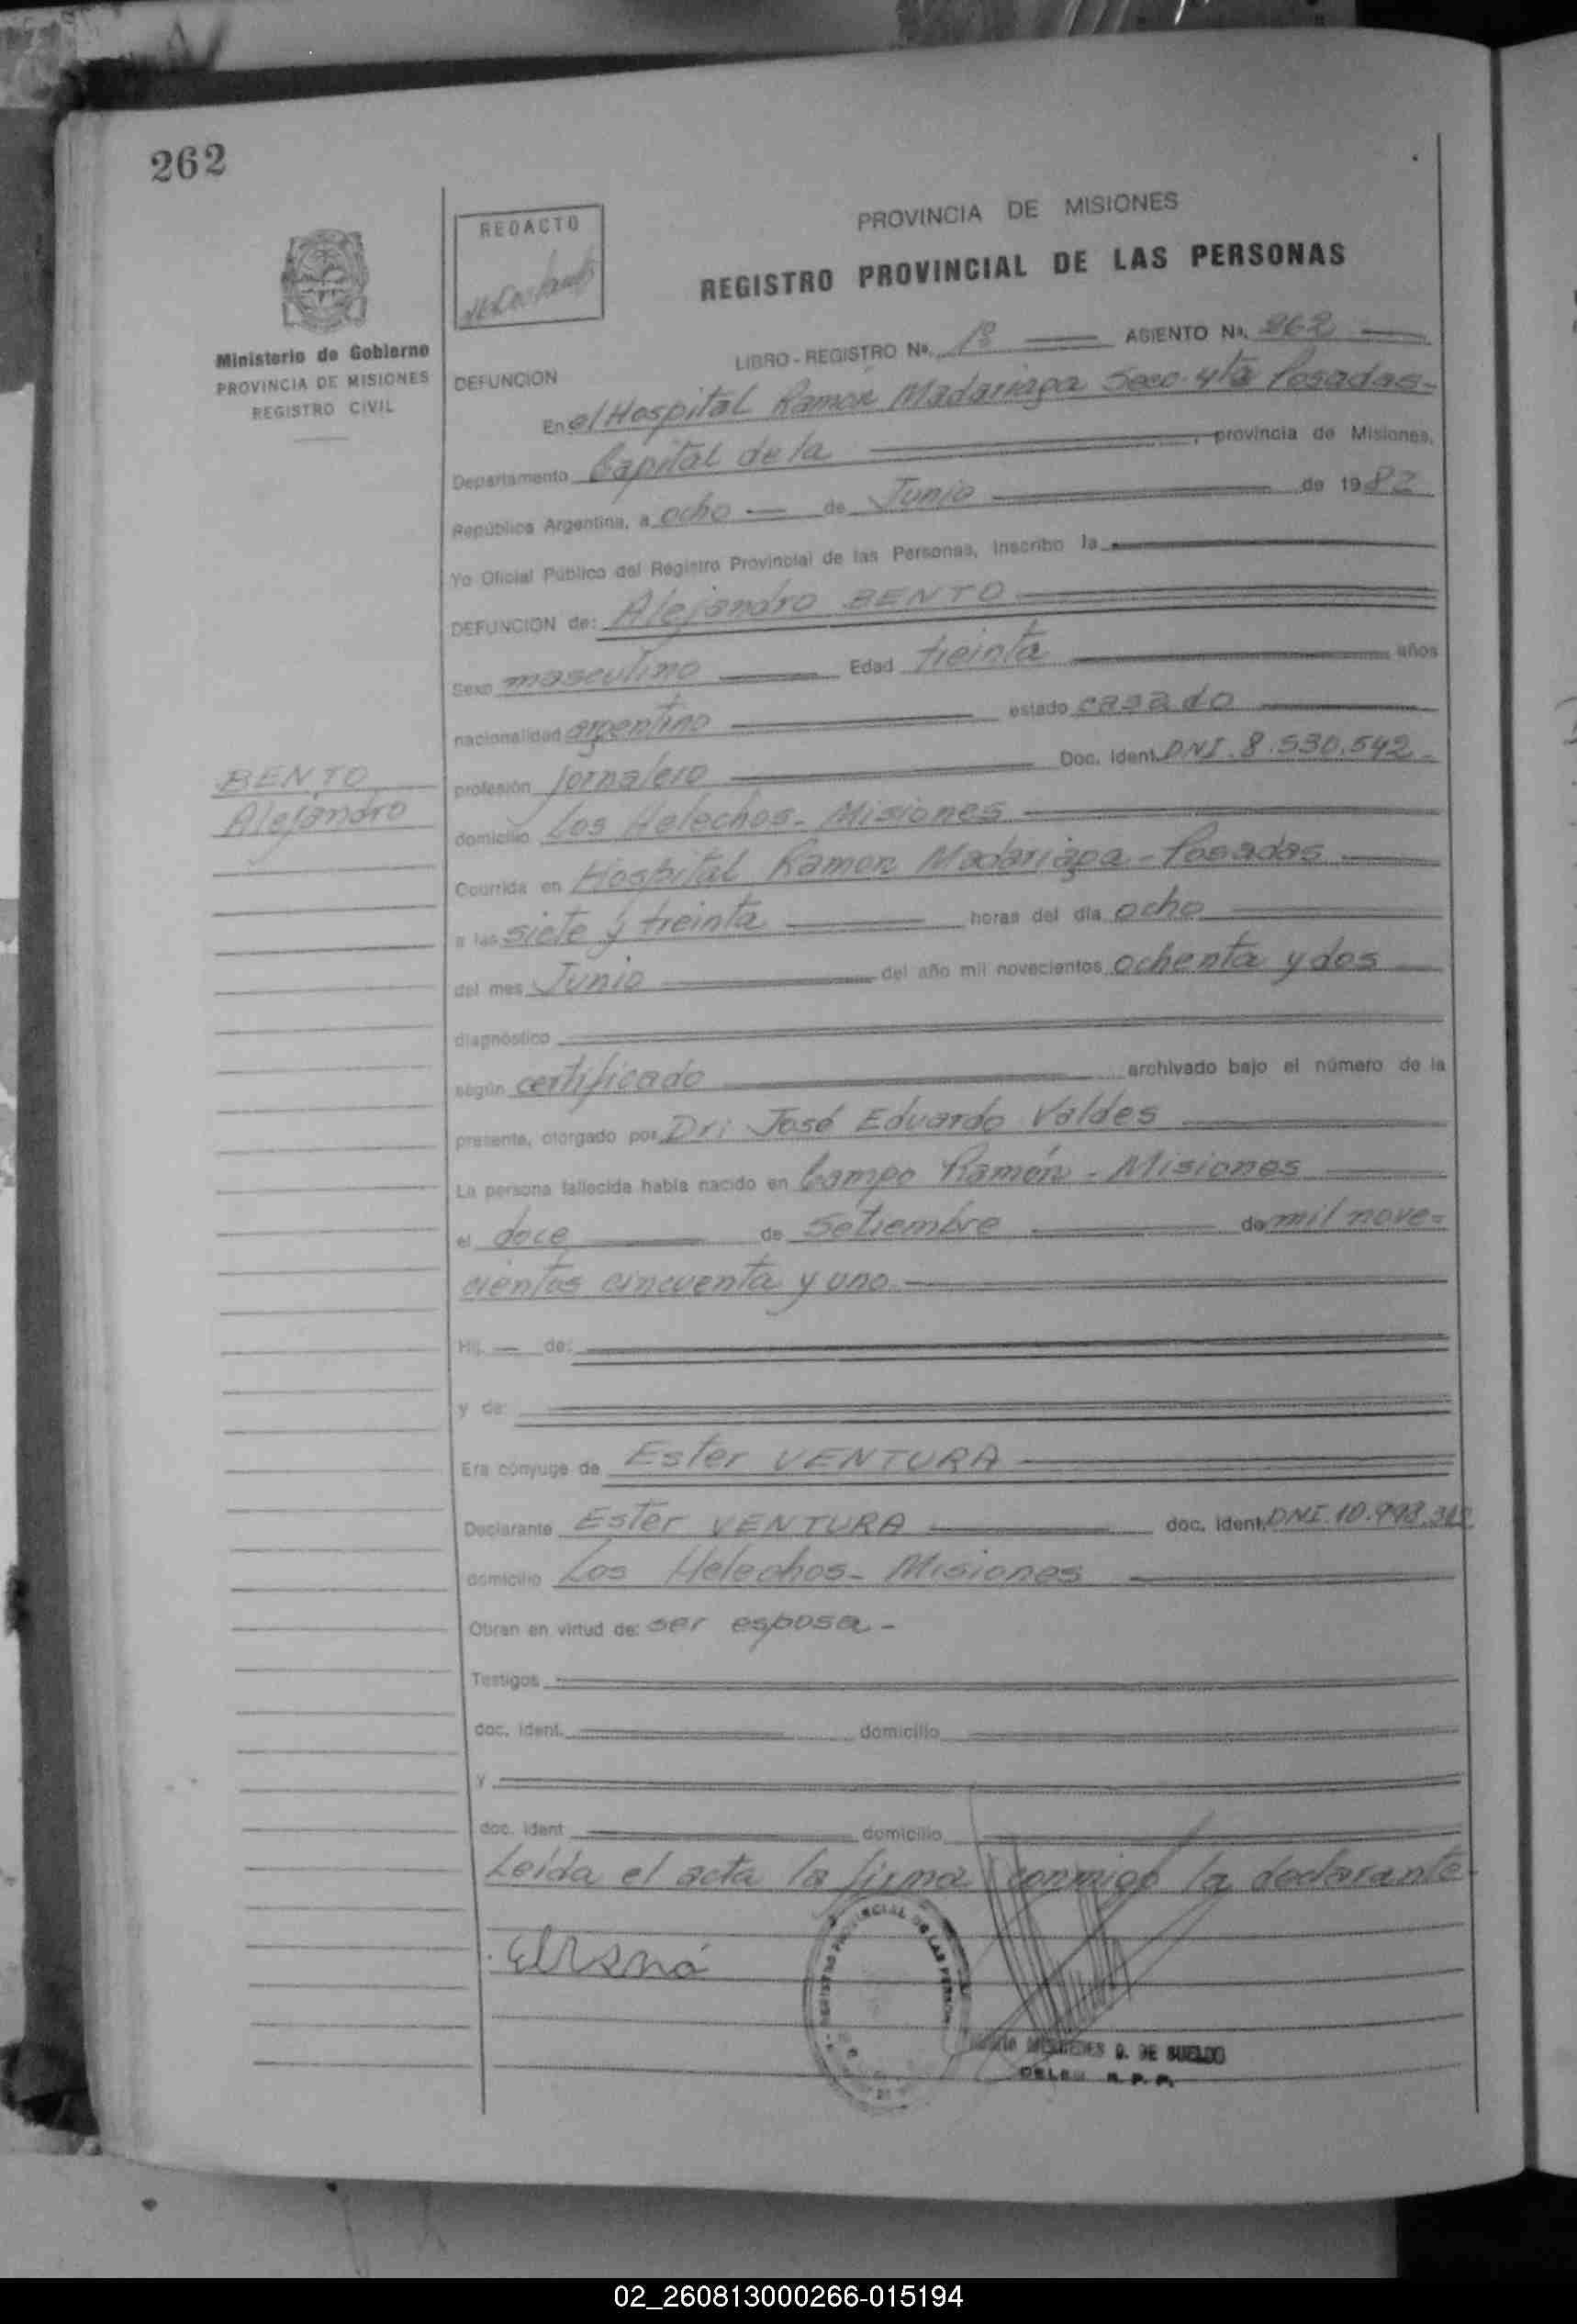 262
REDACTO
PROVINCIA DE MISIONES
REGISTRO PROVINCIAL DE LAS PERSONAS
Ministerio de Gobierno
PROVINCIA DE MISIONES
REGISTRO CIVIL
LIBRO - REGISTRO Nº. 1º ASIENTO Nº. 262
DEFUNCION
En el Hospital Ramón Madariaga Secc. 4ta Posadas-
Departamento Capital de la , provincia de Misiones,
República Argentina, a ocho de Junio de 1982
Yo Oficial Público del Registro Provincial de las Personas, inscribo la
DEFUNCION de: Alejandro BENTO
Sexo masculino Edad treinta años
nacionalidad argentino estado casado
BENTO
Alejandro
profesión jornalero Doc. Ident. DNI. 8.530.542.-
domicilio Los Helechos - Misiones
Ocurrida en Hospital Ramón Madariaga - Posadas
a las siete y treinta horas del día ocho
del mes Junio del año mil novecientos ochenta y dos
diagnóstico
según certificado archivado bajo el número de la
presente, otorgado por Dr: José Eduardo Valdes
La persona fallecida había nacido en Campo Ramón - Misiones
el doce de Setiembre de mil nove=
cientos cincuenta y uno
Hij. — de:
y de:
Era cónyuge de Ester VENTURA
Declarante Ester VENTURA doc. ident. DNI. 10.993.
domicilio Los Helechos - Misiones
Obran en virtud de: ser esposa -
Testigos
doc. ident. domicilio
y
doc. ident domicilio
Leída el acta la firma conmigo la declarante-
REGISTRO PROVINCIAL DE LAS PERSONAS
MERCEDES G. DE SUELDO
DELEG. R. P. P.
02_260813000266-015194